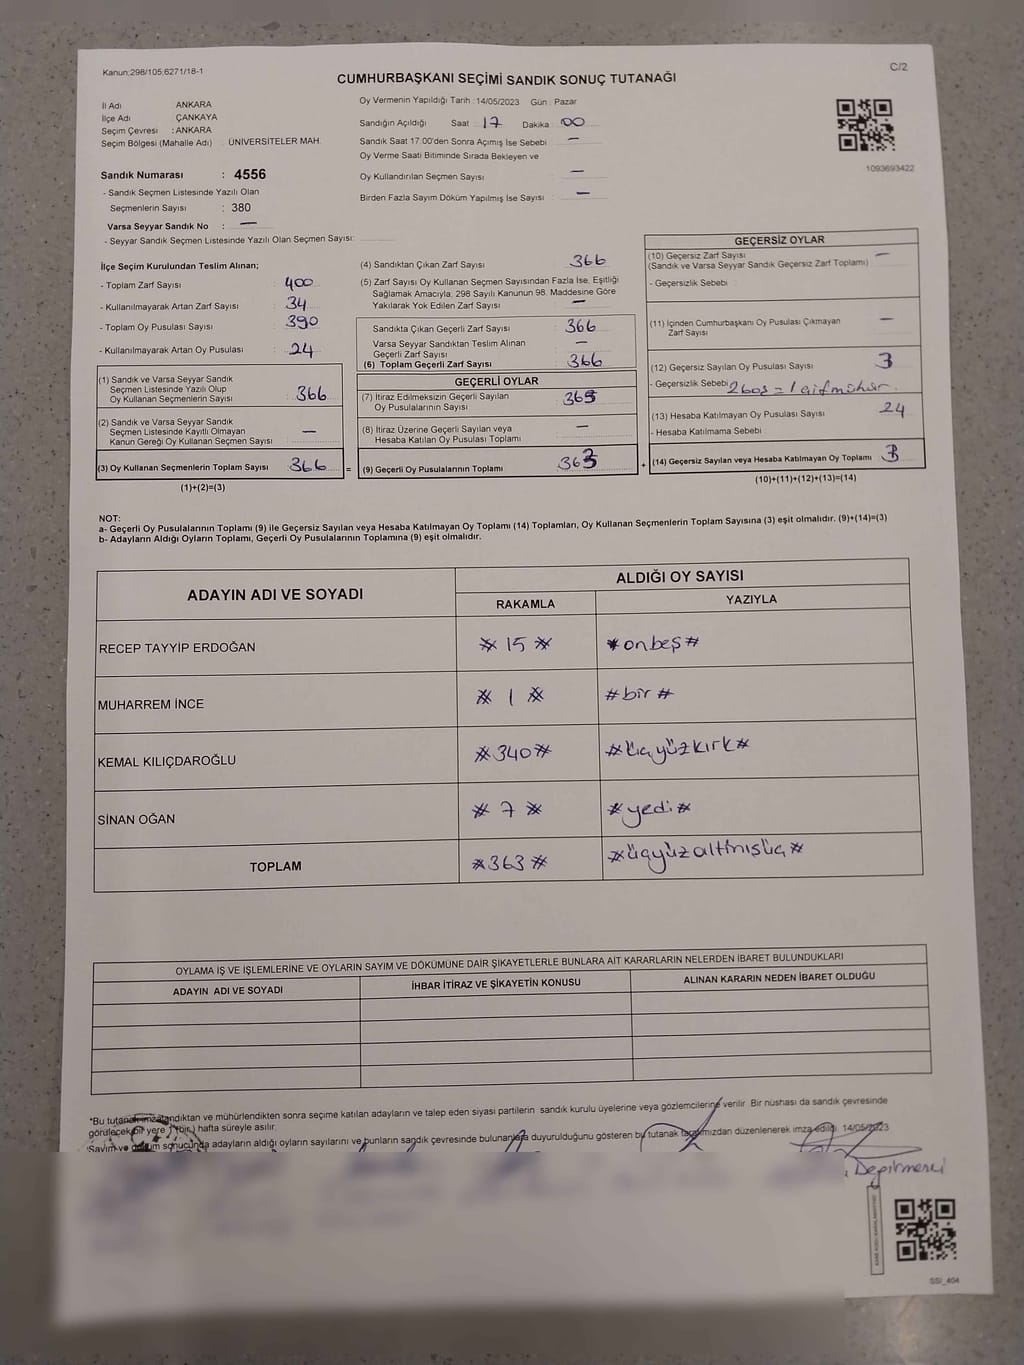 Kanun;298/105;6271/18-1
C/2
CUMHURBAŞKANI SEÇİMİ SANDIK SONUÇ TUTANAĞI
İl Adı ANKARA
İlçe Adı ÇANKAYA
Seçim Çevresi : ANKARA
Seçim Bölgesi (Mahalle Adı) ÜNİVERSİTELER MAH.
Oy Vermenin Yapıldığı Tarih : 14/05/2023 Gün : Pazar
Sandığın Açıldığı Saat 17 Dakika 00
Sandık Saat 17 00'den Sonra Açımış İse Sebebi —
Oy Verme Saati Bitiminde Sırada Bekleyen ve
Oy Kullandırılan Seçmen Sayısı —
Birden Fazla Sayım Döküm Yapılmış İse Sayısı : —
1093693422
Sandık Numarası : 4556
- Sandık Seçmen Listesinde Yazılı Olan
Seçmenlerin Sayısı : 380
Varsa Seyyar Sandık No : —
- Seyyar Sandık Seçmen Listesinde Yazılı Olan Seçmen Sayısı:
İlçe Seçim Kurulundan Teslim Alınan;
- Toplam Zarf Sayısı : 400
- Kullanılmayarak Artan Zarf Sayısı : 34
- Toplam Oy Pusulası Sayısı : 390
- Kullanılmayarak Artan Oy Pusulası : 24
(1) Sandık ve Varsa Seyyar Sandık
Seçmen Listesinde Yazılı Olup
Oy Kullanan Seçmenlerin Sayısı : 366
(2) Sandık ve Varsa Seyyar Sandık
Seçmen Listesinde Kayıtlı Olmayan
Kanun Gereği Oy Kullanan Seçmen Sayısı —
(3) Oy Kullanan Seçmenlerin Toplam Sayısı 366 =
(1)+(2)=(3)
(4) Sandıktan Çıkan Zarf Sayısı 366
(5) Zarf Sayısı Oy Kullanan Seçmen Sayısından Fazla İse, Eşitliği
Sağlamak Amacıyla; 298 Sayılı Kanunun 98. Maddesine Göre
Yakılarak Yok Edilen Zarf Sayısı —
Sandıkta Çıkan Geçerli Zarf Sayısı : 366
Varsa Seyyar Sandıktan Teslim Alınan
Geçerli Zarf Sayısı —
(6) Toplam Geçerli Zarf Sayısı : 366
GEÇERLİ OYLAR
(7) İtiraz Edilmeksizin Geçerli Sayılan
Oy Pusulalarının Sayısı : 363
(8) İtiraz Üzerine Geçerli Sayılan veya
Hesaba Katılan Oy Pusulası Toplamı —
(9) Geçerli Oy Pusulalarının Toplamı 363 +
GEÇERSİZ OYLAR
(10) Geçersiz Zarf Sayısı —
(Sandık ve Varsa Seyyar Sandık Geçersiz Zarf Toplamı)
- Geçersizlik Sebebi :
(11) İçinden Cumhurbaşkanı Oy Pusulası Çıkmayan
Zarf Sayısı —
(12) Geçersiz Sayılan Oy Pusulası Sayısı 3
- Geçersizlik Sebebi 2 boş = 1 çift mühür
(13) Hesaba Katılmayan Oy Pusulası Sayısı 24
- Hesaba Katılmama Sebebi :
(14) Geçersiz Sayılan veya Hesaba Katılmayan Oy Toplamı 3
(10)+(11)+(12)+(13)=(14)
NOT:
a- Geçerli Oy Pusulalarının Toplamı (9) ile Geçersiz Sayılan veya Hesaba Katılmayan Oy Toplamı (14) Toplamları, Oy Kullanan Seçmenlerin Toplam Sayısına (3) eşit olmalıdır. (9)+(14)=(3)
b- Adayların Aldığı Oyların Toplamı, Geçerli Oy Pusulalarının Toplamına (9) eşit olmalıdır.
ADAYIN ADI VE SOYADI ALDIĞI OY SAYISI
RAKAMLA YAZIYLA
RECEP TAYYİP ERDOĞAN # 15 # # onbeş #
MUHARREM İNCE # 1 # # bir #
KEMAL KILIÇDAROĞLU # 340 # # üçyüzkırk #
SİNAN OĞAN # 7 # # yedi #
TOPLAM # 363 # # üçyüzaltmışüç #
OYLAMA İŞ VE İŞLEMLERİNE VE OYLARIN SAYIM VE DÖKÜMÜNE DAİR ŞİKAYETLERLE BUNLARA AİT KARARLARIN NELERDEN İBARET BULUNDUKLARI
ADAYIN ADI VE SOYADI İHBAR İTİRAZ VE ŞİKAYETİN KONUSU ALINAN KARARIN NEDEN İBARET OLDUĞU
*Bu tutanak imzalandıktan ve mühürlendikten sonra seçime katılan adayların ve talep eden siyasi partilerin sandık kurulu üyelerine veya gözlemcilerine verilir. Bir nüshası da sandık çevresinde
görülecek bir yere 1 (bir) hafta süreyle asılır.
*Sayım ve döküm sonucunda adayların aldığı oyların sayılarını ve bunların sandık çevresinde bulunanlara duyurulduğunu gösteren bu tutanak tarafımızdan düzenlenerek imza edildi. 14/05/2023
Değirmenci
SSİ_404